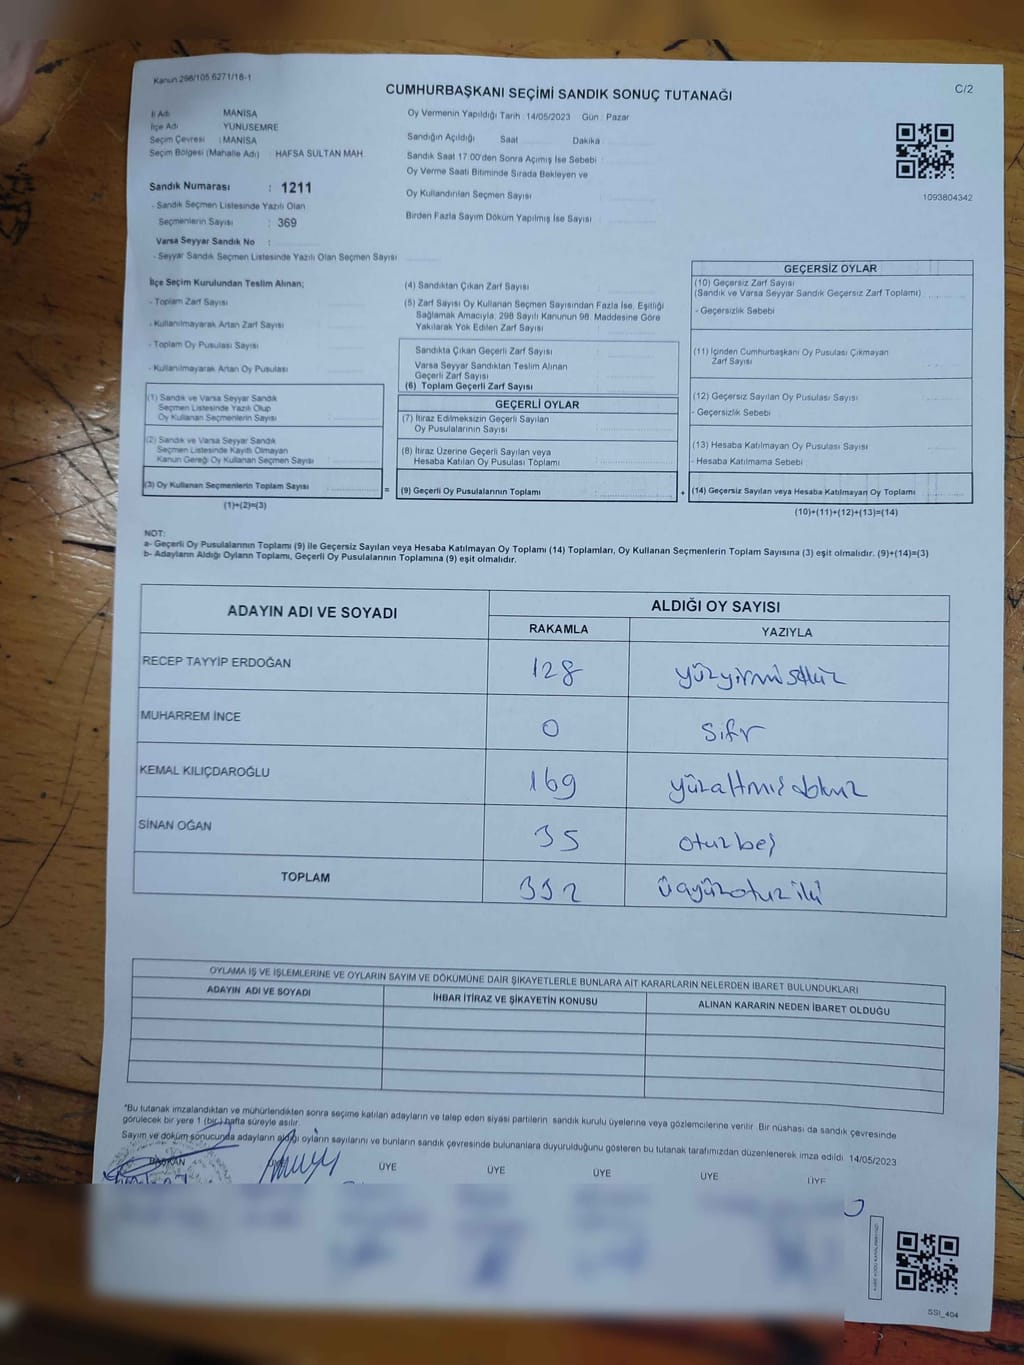 Kanun 298/105 6271/18-1
CUMHURBAŞKANI SEÇİMİ SANDIK SONUÇ TUTANAĞI
C/2
İl Adı MANİSA
İlçe Adı YUNUSEMRE
Seçim Çevresi : MANİSA
Seçim Bölgesi (Mahalle Adı) : HAFSA SULTAN MAH.
Sandık Numarası : 1211
- Sandık Seçmen Listesinde Yazılı Olan
Seçmenlerin Sayısı : 369
Varsa Seyyar Sandık No :
- Seyyar Sandık Seçmen Listesinde Yazılı Olan Seçmen Sayısı
Oy Vermenin Yapıldığı Tarih 14/05/2023 Gün : Pazar
Sandığın Açıldığı Saat Dakika
Sandık Saat 17:00'den Sonra Açılmış İse Sebebi :
Oy Verme Saati Bitiminde Sırada Bekleyen ve
Oy Kullandırılan Seçmen Sayısı :
Birden Fazla Sayım Döküm Yapılmış İse Sayısı :
1093804342
İlçe Seçim Kurulundan Teslim Alınan;
- Toplam Zarf Sayısı
- Kullanılmayarak Artan Zarf Sayısı
- Toplam Oy Pusulası Sayısı
- Kullanılmayarak Artan Oy Pusulası
(1) Sandık ve Varsa Seyyar Sandık
Seçmen Listesinde Yazılı Olup
Oy Kullanan Seçmenlerin Sayısı
(2) Sandık ve Varsa Seyyar Sandık
Seçmen Listesinde Kayıtlı Olmayan
Kanun Gereği Oy Kullanan Seçmen Sayısı
(3) Oy Kullanan Seçmenlerin Toplam Sayısı
(1)+(2)=(3)
(4) Sandıktan Çıkan Zarf Sayısı
(5) Zarf Sayısı Oy Kullanan Seçmen Sayısından Fazla İse, Eşitliği
Sağlamak Amacıyla, 298 Sayılı Kanunun 98. Maddesine Göre
Yakılarak Yok Edilen Zarf Sayısı
Sandıkta Çıkan Geçerli Zarf Sayısı
Varsa Seyyar Sandıktan Teslim Alınan
Geçerli Zarf Sayısı
(6) Toplam Geçerli Zarf Sayısı
GEÇERLİ OYLAR
(7) İtiraz Edilmeksizin Geçerli Sayılan
Oy Pusulalarının Sayısı
(8) İtiraz Üzerine Geçerli Sayılan veya
Hesaba Katılan Oy Pusulası Toplamı
= (9) Geçerli Oy Pusulalarının Toplamı
GEÇERSİZ OYLAR
(10) Geçersiz Zarf Sayısı
(Sandık ve Varsa Seyyar Sandık Geçersiz Zarf Toplamı)
- Geçersizlik Sebebi
(11) İçinden Cumhurbaşkanı Oy Pusulası Çıkmayan
Zarf Sayısı
(12) Geçersiz Sayılan Oy Pusulası Sayısı
- Geçersizlik Sebebi
(13) Hesaba Katılmayan Oy Pusulası Sayısı
- Hesaba Katılmama Sebebi
+ (14) Geçersiz Sayılan veya Hesaba Katılmayan Oy Toplamı
(10)+(11)+(12)+(13)=(14)
NOT:
a- Geçerli Oy Pusulalarının Toplamı (9) ile Geçersiz Sayılan veya Hesaba Katılmayan Oy Toplamı (14) Toplamları, Oy Kullanan Seçmenlerin Toplam Sayısına (3) eşit olmalıdır. (9)+(14)=(3)
b- Adayların Aldığı Oyların Toplamı, Geçerli Oy Pusulalarının Toplamına (9) eşit olmalıdır.
ADAYIN ADI VE SOYADI
ALDIĞI OY SAYISI
RAKAMLA YAZIYLA
RECEP TAYYİP ERDOĞAN 128 yüzyirmisekiz
MUHARREM İNCE 0 Sıfır
KEMAL KILIÇDAROĞLU 169 yüzaltmışdokuz
SİNAN OĞAN 35 otuzbeş
TOPLAM 332 üçyüzotuziki
OYLAMA İŞ VE İŞLEMLERİNE VE OYLARIN SAYIM VE DÖKÜMÜNE DAİR ŞİKAYETLERLE BUNLARA AİT KARARLARIN NELERDEN İBARET BULUNDUKLARI
ADAYIN ADI VE SOYADI İHBAR İTİRAZ VE ŞİKAYETİN KONUSU ALINAN KARARIN NEDEN İBARET OLDUĞU
*Bu tutanak imzalandıktan ve mühürlendikten sonra seçime katılan adayların ve talep eden siyasi partilerin sandık kurulu üyelerine veya gözlemcilerine verilir. Bir nüshası da sandık çevresinde
görülecek bir yere 1 (bir) hafta süreyle asılır.
Sayım ve döküm sonucunda adayların aldığı oyların sayılarını ve bunların sandık çevresinde bulunanlara duyurulduğunu gösteren bu tutanak tarafımızdan düzenlenerek imza edildi. 14/05/2023
BAŞKAN ÜYE ÜYE ÜYE ÜYE ÜYE
SSI_404